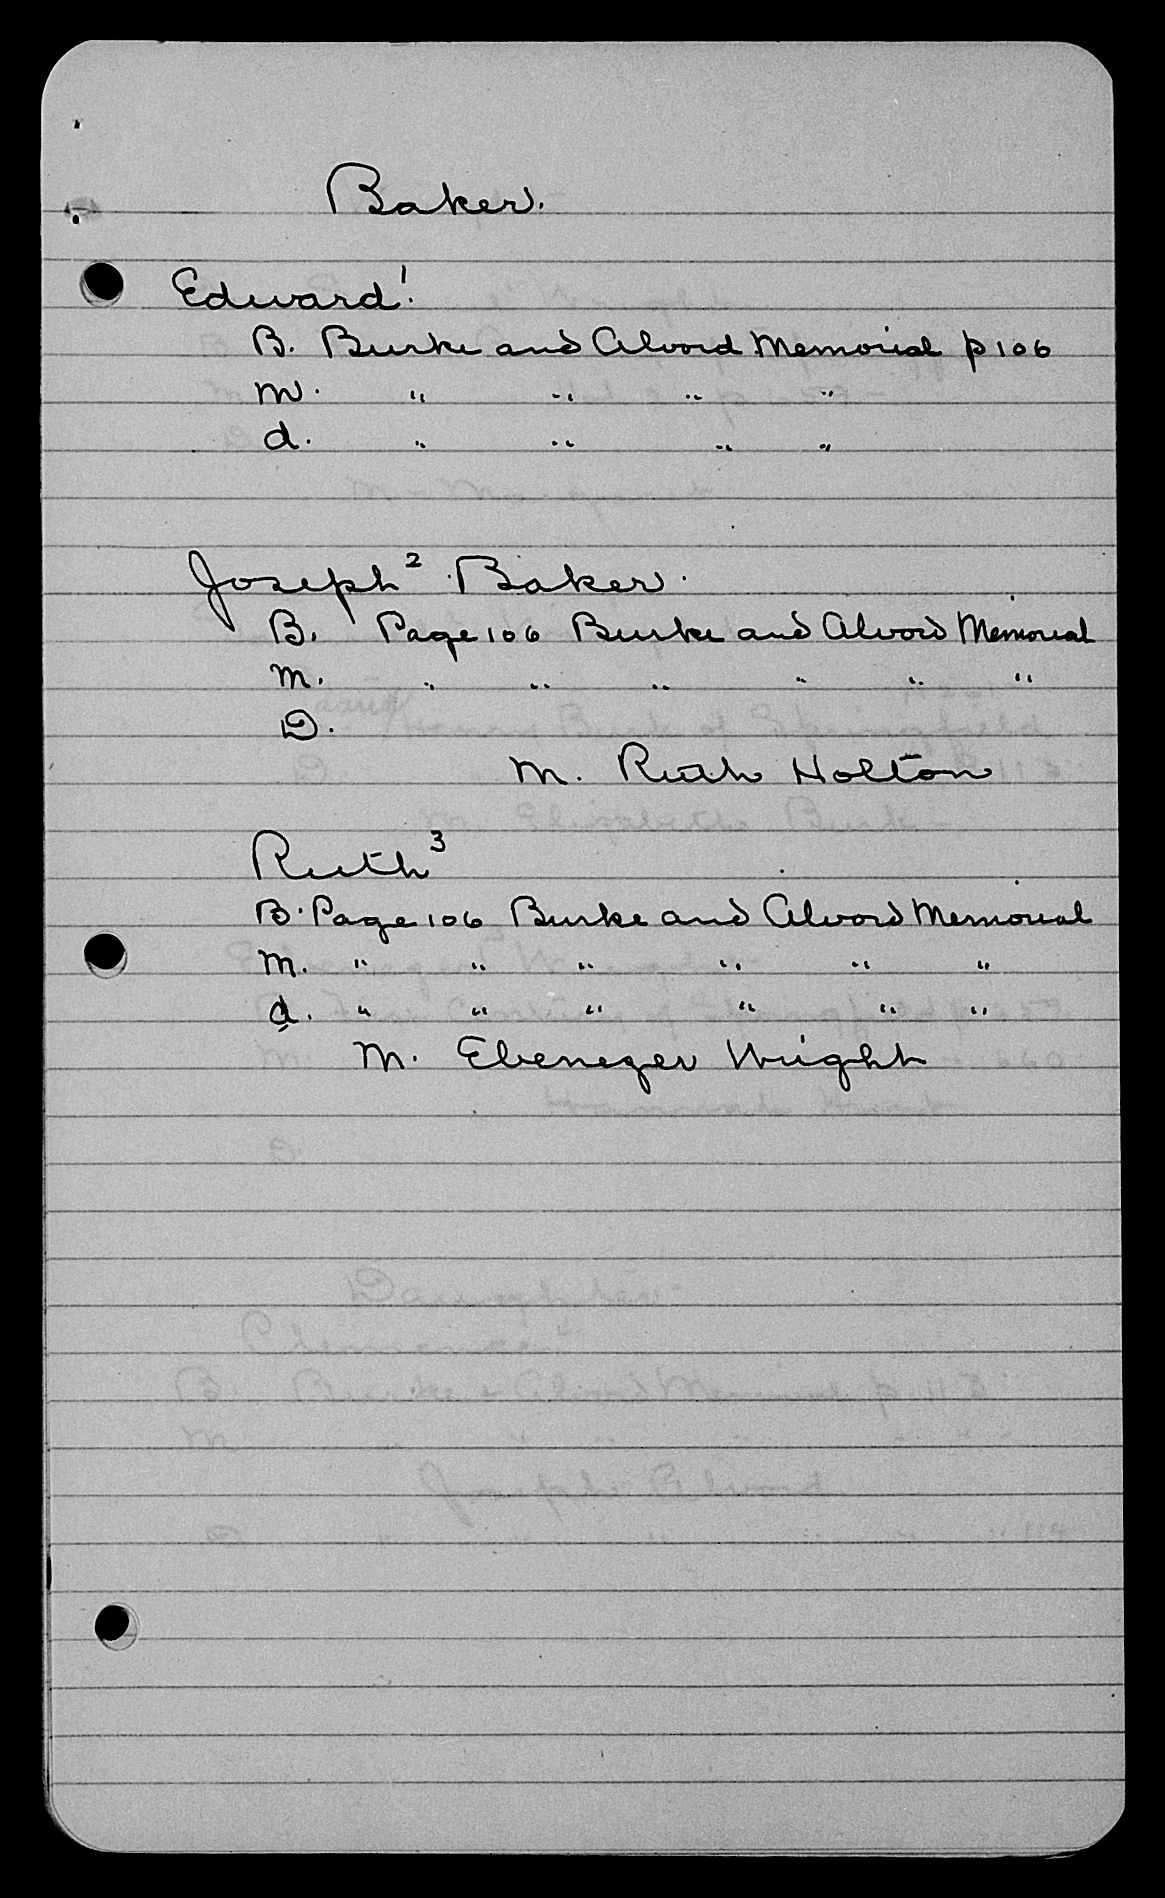 Baker.
Edward¹.
B. Burke and Alvord Memorial p 106
M. " " " "
d. " " " "
Joseph² Baker.
B. Page 106 Burke and Alvord Memorial
M. " " " " " "
D.
M. Ruth Holton
Ruth³
B. Page 106 Burke and Alvord Memorial
M. " " " " " "
d. " " " " " "
M. Ebenezer Wright